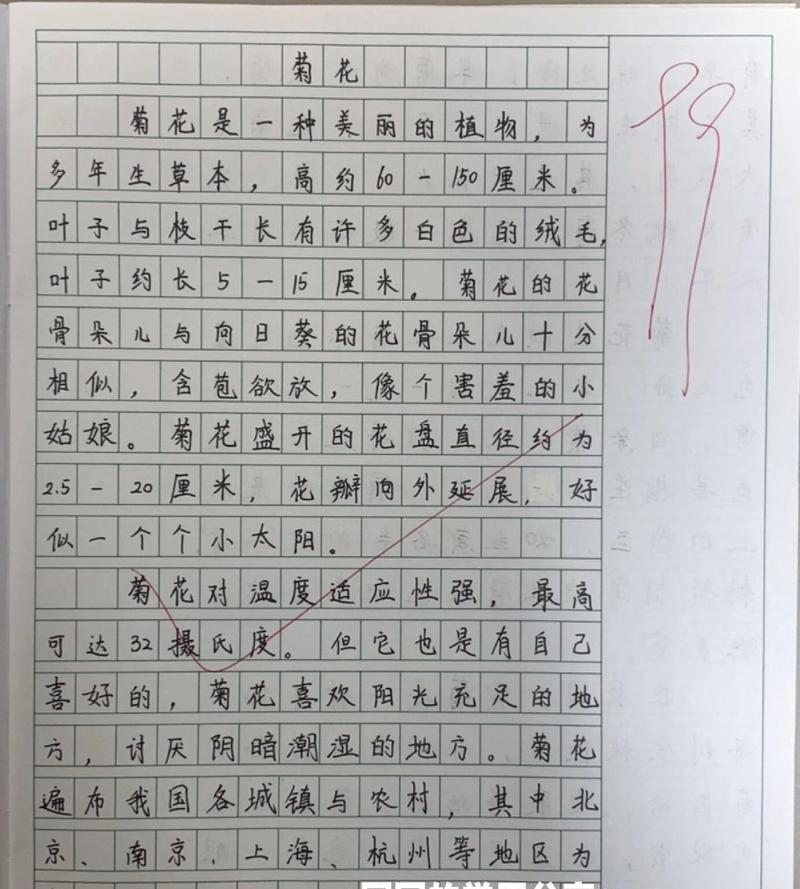 菊花
99
菊花是一种美丽的植物，为
多年生草本，高约60-150厘米。
叶子与枝干长有许多白色的绒毛，
叶子约长5-15厘米。菊花的花
骨朵儿与向日葵的花骨朵儿十分
相似，含苞欲放，像个害羞的小
姑娘。菊花盛开的花盘直径约为
2.5-20厘米，花瓣向外延展，好
似一个个小太阳。
菊花对温度适应性强，最高
可达32摄氏度。但它也是有自己
喜好的，菊花喜欢阳光充足的地
方，讨厌阴暗潮湿的地方。菊花
遍布我国各城镇与农村，其中北
京、南京、上海、杭州等地区为